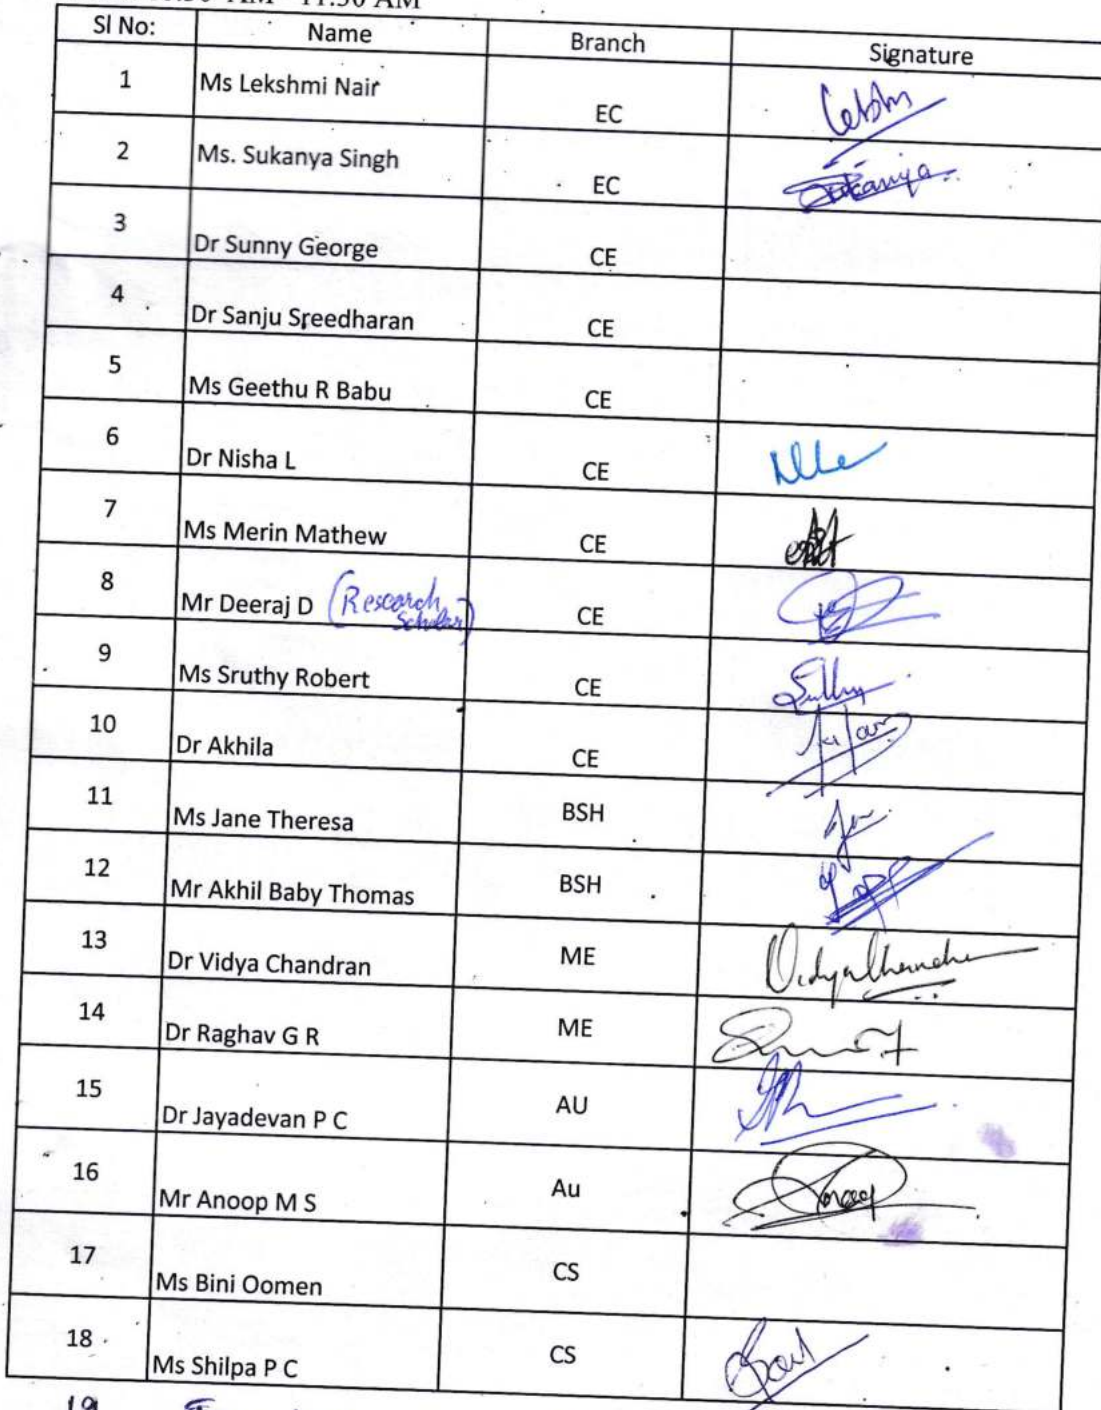 AM - 11:30 AM
Sl No: Name Branch Signature
1 Ms Lekshmi Nair EC
2 Ms. Sukanya Singh EC Sukanya
3 Dr Sunny George CE
4 Dr Sanju Sreedharan CE
5 Ms Geethu R Babu CE
6 Dr Nisha L CE
7 Ms Merin Mathew CE
8 Mr Deeraj D (Research Scholar) CE
9 Ms Sruthy Robert CE
10 Dr Akhila CE
11 Ms Jane Theresa BSH
12 Mr Akhil Baby Thomas BSH
13 Dr Vidya Chandran ME VidyaChandran
14 Dr Raghav G R ME
15 Dr Jayadevan P C AU
16 Mr Anoop M S Au Anoop
17 Ms Bini Oomen CS
18 Ms Shilpa P C CS
19